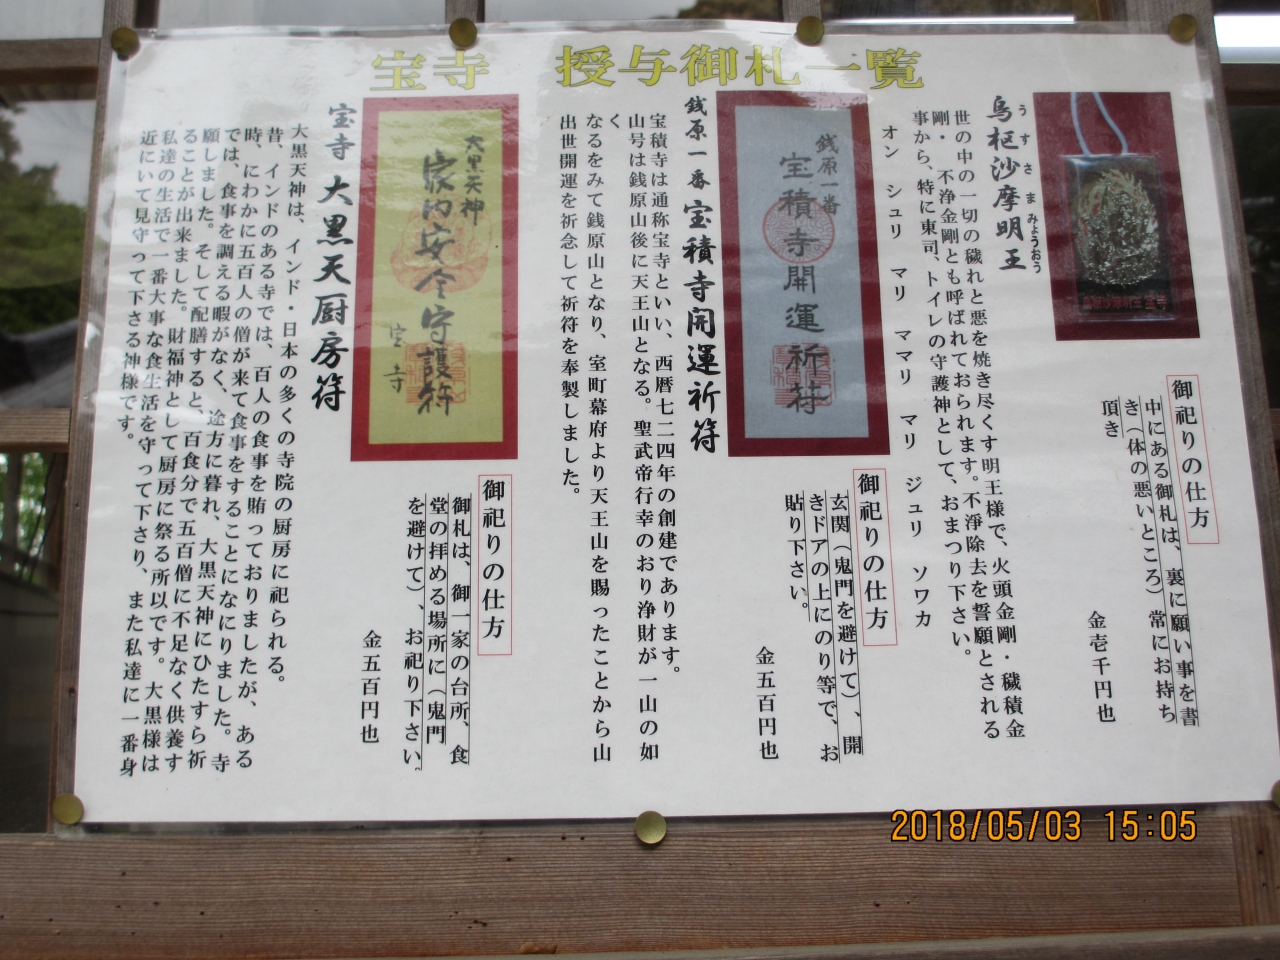 宝寺　授与御札一覧
烏枢沙摩明王
うすさまみょうおう
世の中の一切の穢れと悪を焼き尽くす明王様で、火頭金剛・穢積金
剛・不浄金剛とも呼ばれております。不淨除去を誓願とされる
事から、特に東司、トイレの守護神として、おまつり下さい。
オン　シュリ　マリ　ママリ　マリ　ジュリ　ソワカ
御祀りの仕方
中にある御札は、裏に願い事を書
き（体の悪いところ）常にお持ち
頂き
金壱千円也
銭原一番
宝積寺開運祈符
銭原一番宝積寺開運祈符
宝積寺は通称宝寺といい、西暦七二四年の創建であります。
山号は銭原山後に天王山となる。聖武帝行幸のおり浄財が一山の如
く
なるをみて銭原山となり、室町幕府より天王山を賜ったことから山
出世開運を祈念して祈符を奉製しました。
御祀りの仕方
玄関（鬼門を避けて）、開
きドアの上にのり等で、お
貼り下さい。
金五百円也
大黒天神
家内安全守護符
宝寺
宝寺　大黒天厨房符
大黒天神は、インド・日本の多くの寺院の厨房に祀られる。
昔、インドのある寺では、百人の食事を賄っておりましたが、ある
時、にわかに五百人の僧が来て食事をすることになにりました。寺
では、食事を調える暇がなく、途方に暮れ、大黒天神にひたすら祈
願しました。そして配膳すると、百食分で五百僧に不足なく供養す
ることが出来ました。財福神として厨房に祭る所以です。大黒様は
私達の生活で一番大事な食生活を守って下さり、また私達に一番身
近にいて見守って下さる神様です。
御祀りの仕方
御札は、御一家の台所、食
堂の拝める場所に（鬼門
を避けて）、お祀り下さい。
金五百円也
2018/05/03 15:05